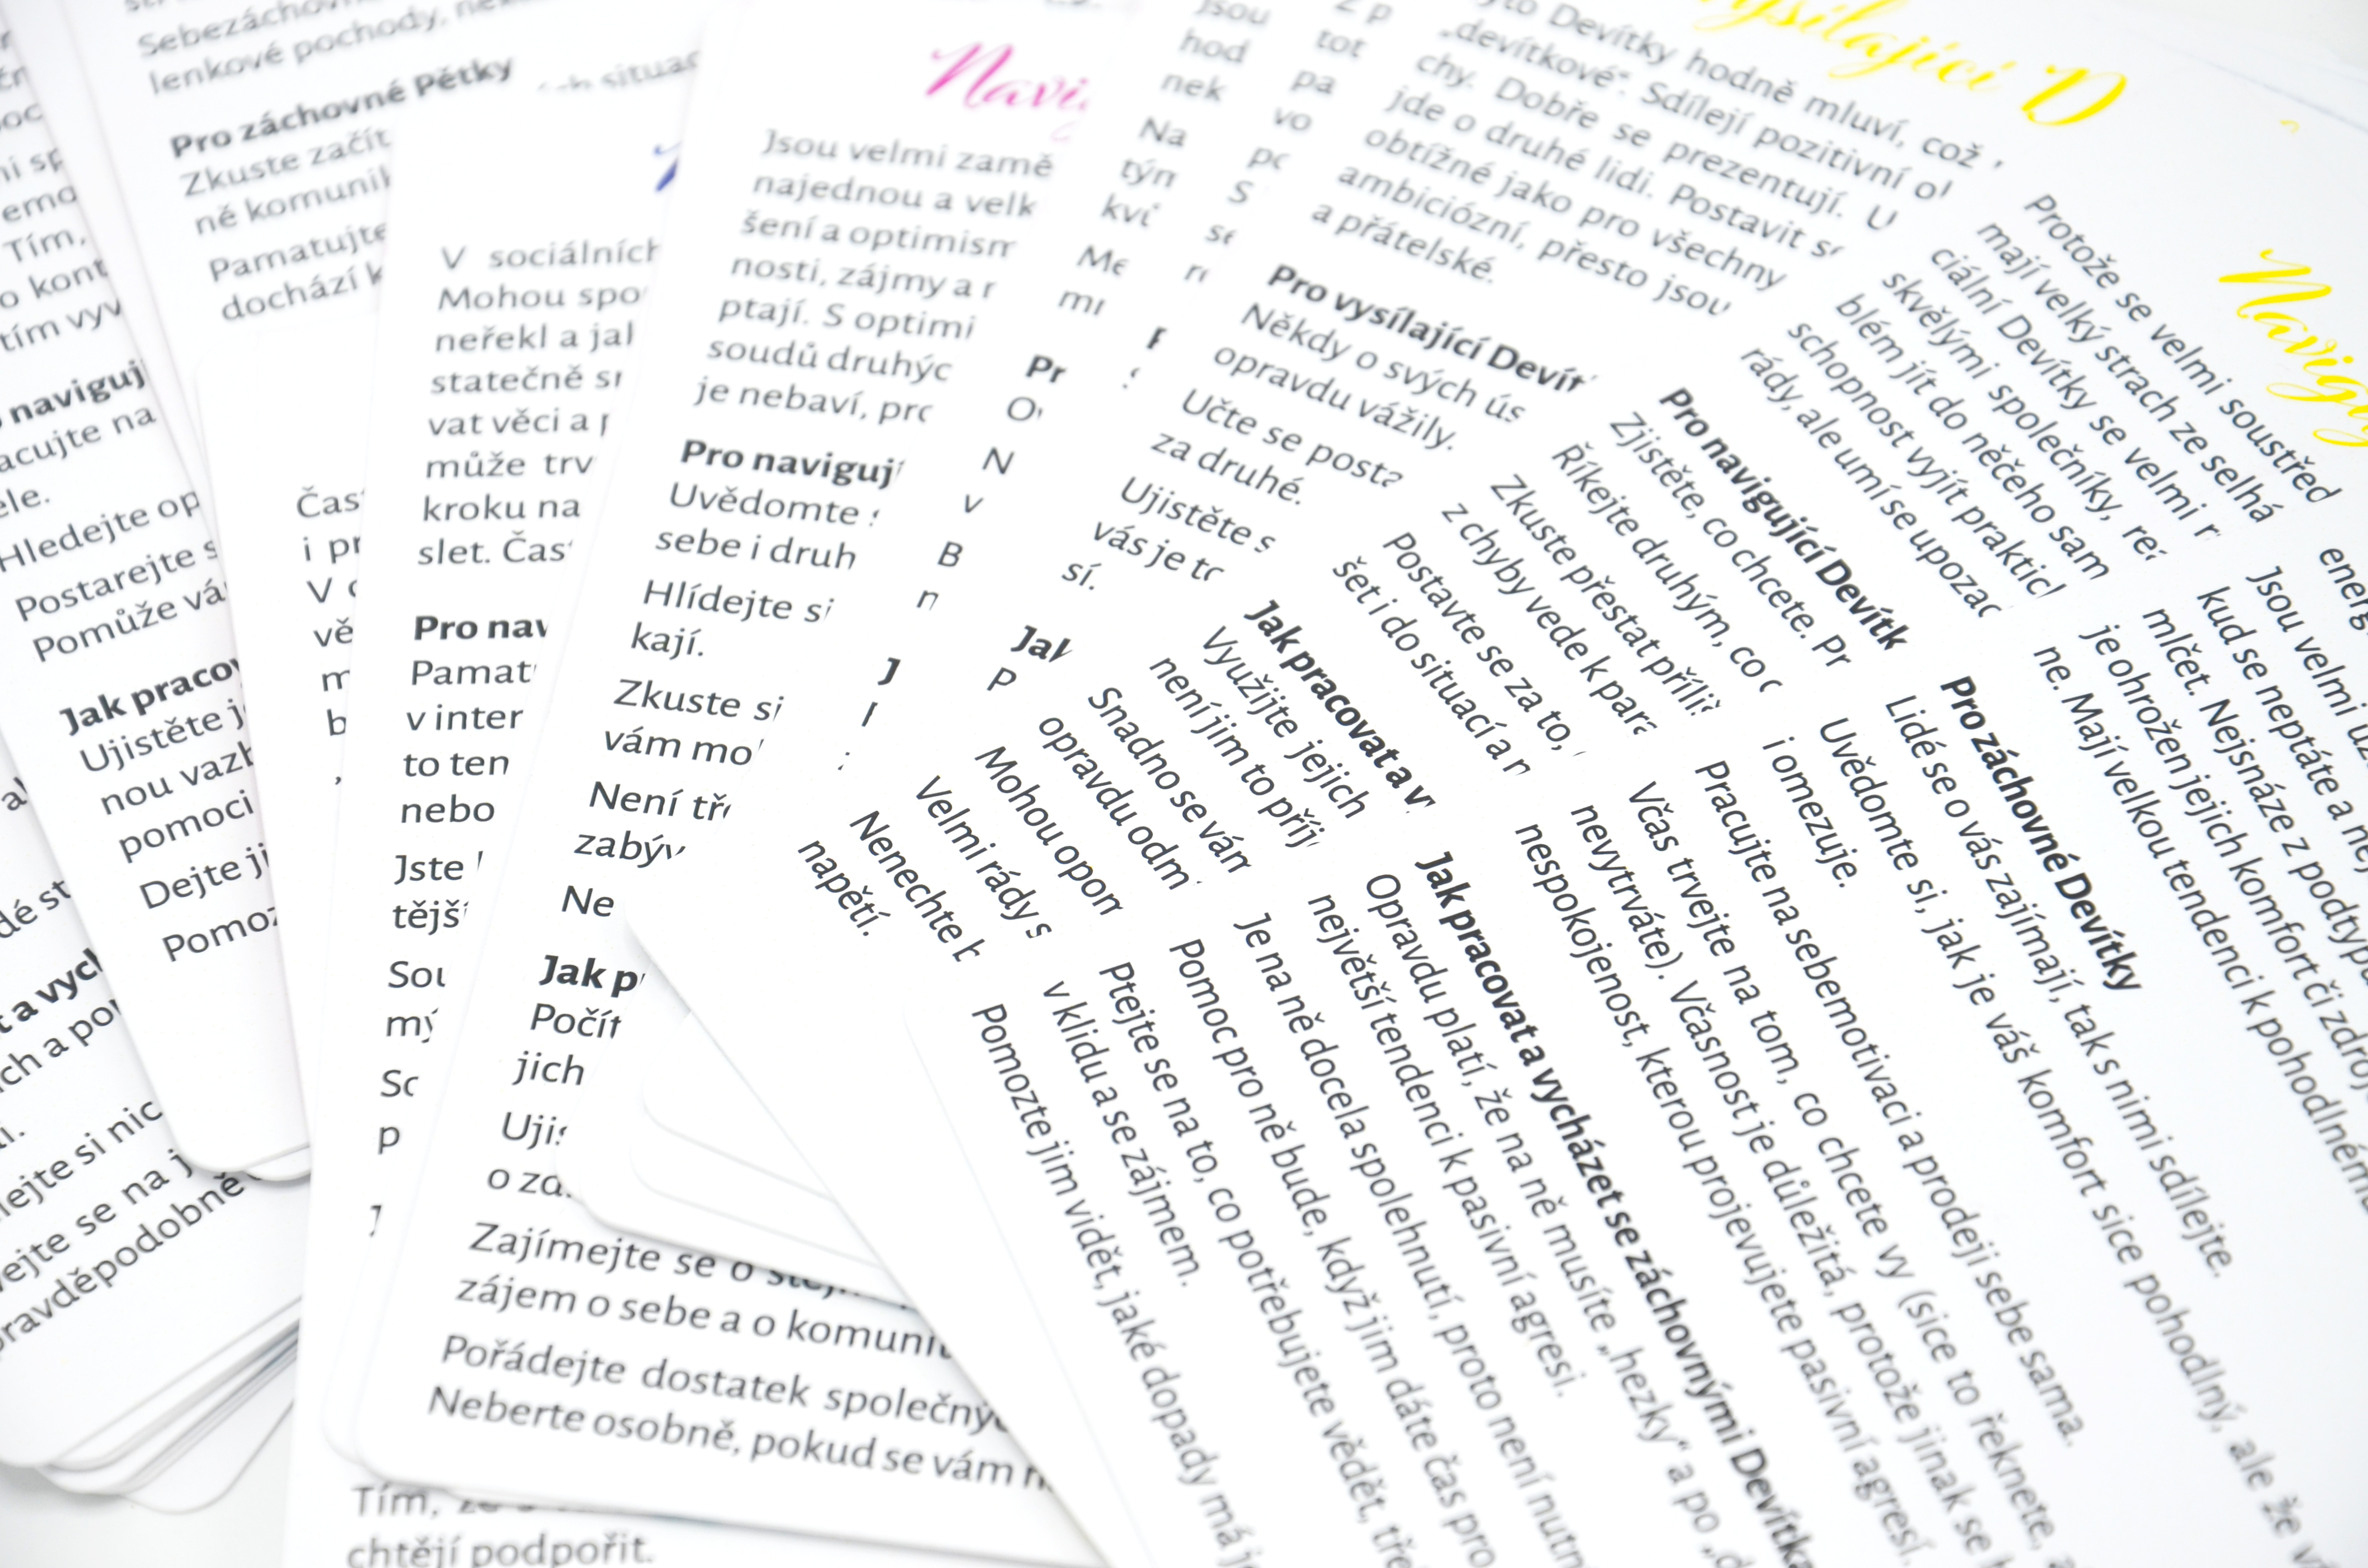 Sebezáchovn
lenkové pochody,
Pro záchovné Pětky
Zkuste začít
né komunik
Pamatujte
dochází k
Tím,
o kont
tím vyv
naviguj
acujte na
ele.
Hledejte op
Postarejte s
Pomůže vá
Jak pracov
Ujistěte j
nou vazb
pomoci
Dejte ji
Pomoz
dé st
t a vych
ich a po
lejte si nic
vejte se na j
pravděpodobně
Čas
i pr
V
vě
m
b
situac
V sociálních
Mohou spo
neřekl a jal
statečně sr
vat věci a p
může trv
kroku na
slet. Čas
Pro nav
Pamat
v inter
to ten
nebo
Jste
tější
Sou
mý
So
p
Tím, že s
chtějí podpořit.
Navi
Jsou velmi zamě
najednou a velk
šení a optimism
nosti, zájmy a r
ptají. S optimi
soudů druhýc
je nebaví, pro
Pro naviguj
Uvědomte s
sebe i druh
Hlídejte si
kají.
Zkuste si
vám mo
Není tře
zabýv
Ne
Jak p
Počít
jich
Ujis
o zd
Zajímejte se o stej
zájem o sebe a o komunit
Pořádejte dostatek společnýc
Neberte osobně, pokud se vám n
jsou
hod
nek
Na
týn
kvů
Me
mi
Pr
O
N
v
B
n
J
Z p
tot
pa
vo
po
S
se
Jak
P
vysílající D
yto Devítky hodně mluví, což
„devítkové“. Sdílejí pozitivní
chy. Dobře se prezentují. U
jde o druhé lidi. Postavit se
obtížné jako pro všechny
ambiciózní, přesto jsou
a přátelské.
Pro vysílající Devít
Někdy o svých ús
opravdu vážily.
Učte se posta
za druhé.
Ujistěte s
vás je to
sí.
Jak pracovat a v
Využijte jejich
není jim to příj
Snadno se vám
opravdu odm
Mohou opon
Velmi rády s
Nenechte
napětí.
Navigu
Protože se velmi soustřed
mají velký strach ze selhá
ciální Devítky se velmi r
skvělými společníky, re
blém jít do něčeho sam
schopnost vyjít praktick
rády, ale umí se upozad
Pro navigující Devítk
Zjistěte, co chcete. Pr
Říkejte druhým, co
Zkuste přestat příliš
z chyby vede k para
Postavte se za to,
šet i do situací a n
energ
Jsou velmi
kud se neptáte a nej
mlčet. Nejsnáze z podtypů
je ohrožen jejich komfort či zdroj
ne. Mají velkou tendenci k pohodlnému
Pro záchovné Devítky
Lidé se o vás zajímají, tak s nimi sdílejte.
Uvědomte si, jak je váš komfort sice pohodlný, ale že v
i omezuje.
Pracujte na sebemotivaci a prodeji sebe sama.
Včas trvejte na tom, co chcete vy (sice to řeknete,
nevytrváte). Včasnost je důležitá, protože jinak se
nespokojenost, kterou projevujete pasivní agresí.
Jak pracovat a vycházet se záchovnými Devítka
Opravdu platí, že na ně musíte „hezky“ a po
největší tendenci k pasivní agresi.
Je na ně docela spolehnutí, proto není nutn
Pomoc pro ně bude, když jim dáte čas pro
Ptejte se na to, co potřebujete vědět, tře
v klidu a se zájmem.
Pomozte jim vidět, jaké dopady má je